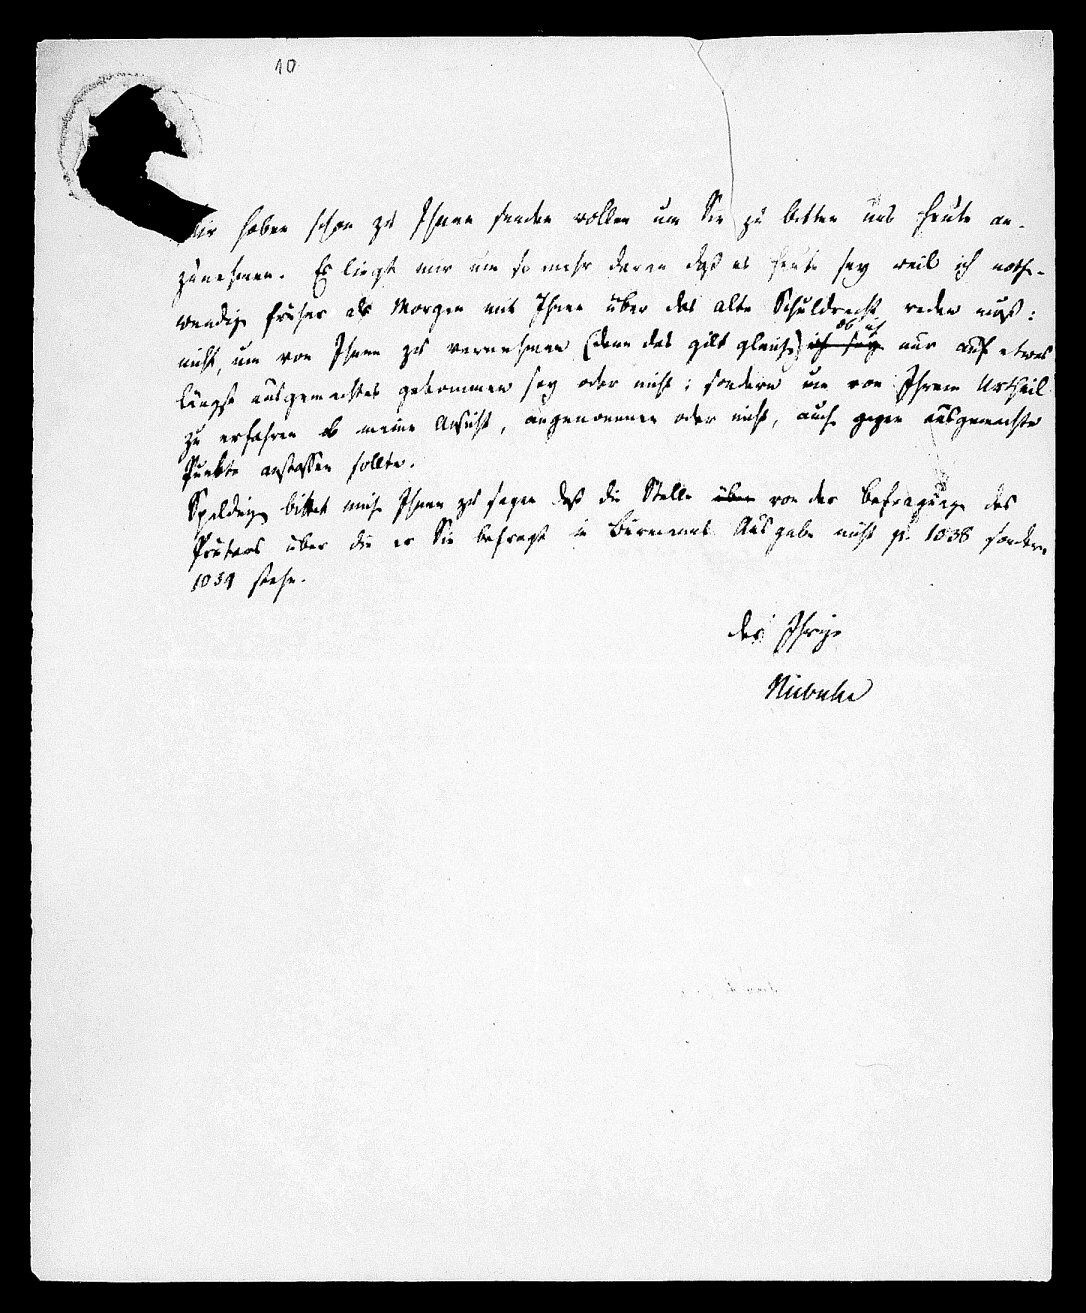 10
Wir haben schon zu Ihnen senden wollen um Sie zu bitten uns heute an-
zunehmen. Es liegt mir um so mehr daran daß es heute sey weil ich noth-
wendig früher als Morgen mit Ihnen über das alte Schuldrecht reden muß:
nicht, um von Ihnen zu vernehmen (denn das gilt gleich) ich sey ob ich nur auf etwas
längst ausgemachtes gekommen sey oder nicht; sondern um von Ihrem Urtheil
zu erfahren ob meine Ansicht, angenommen oder nicht, auch gegen ausgemachte
Punkte anstossen sollte.
Spalding bittet mich Ihnen zu sagen daß die Stelle über von der Befragung des
Prätors über die er Sie befragt in Burmanns Ausgabe nicht p. 1038 sondern
1034 stehe.
der Ihrige
Niebuhr